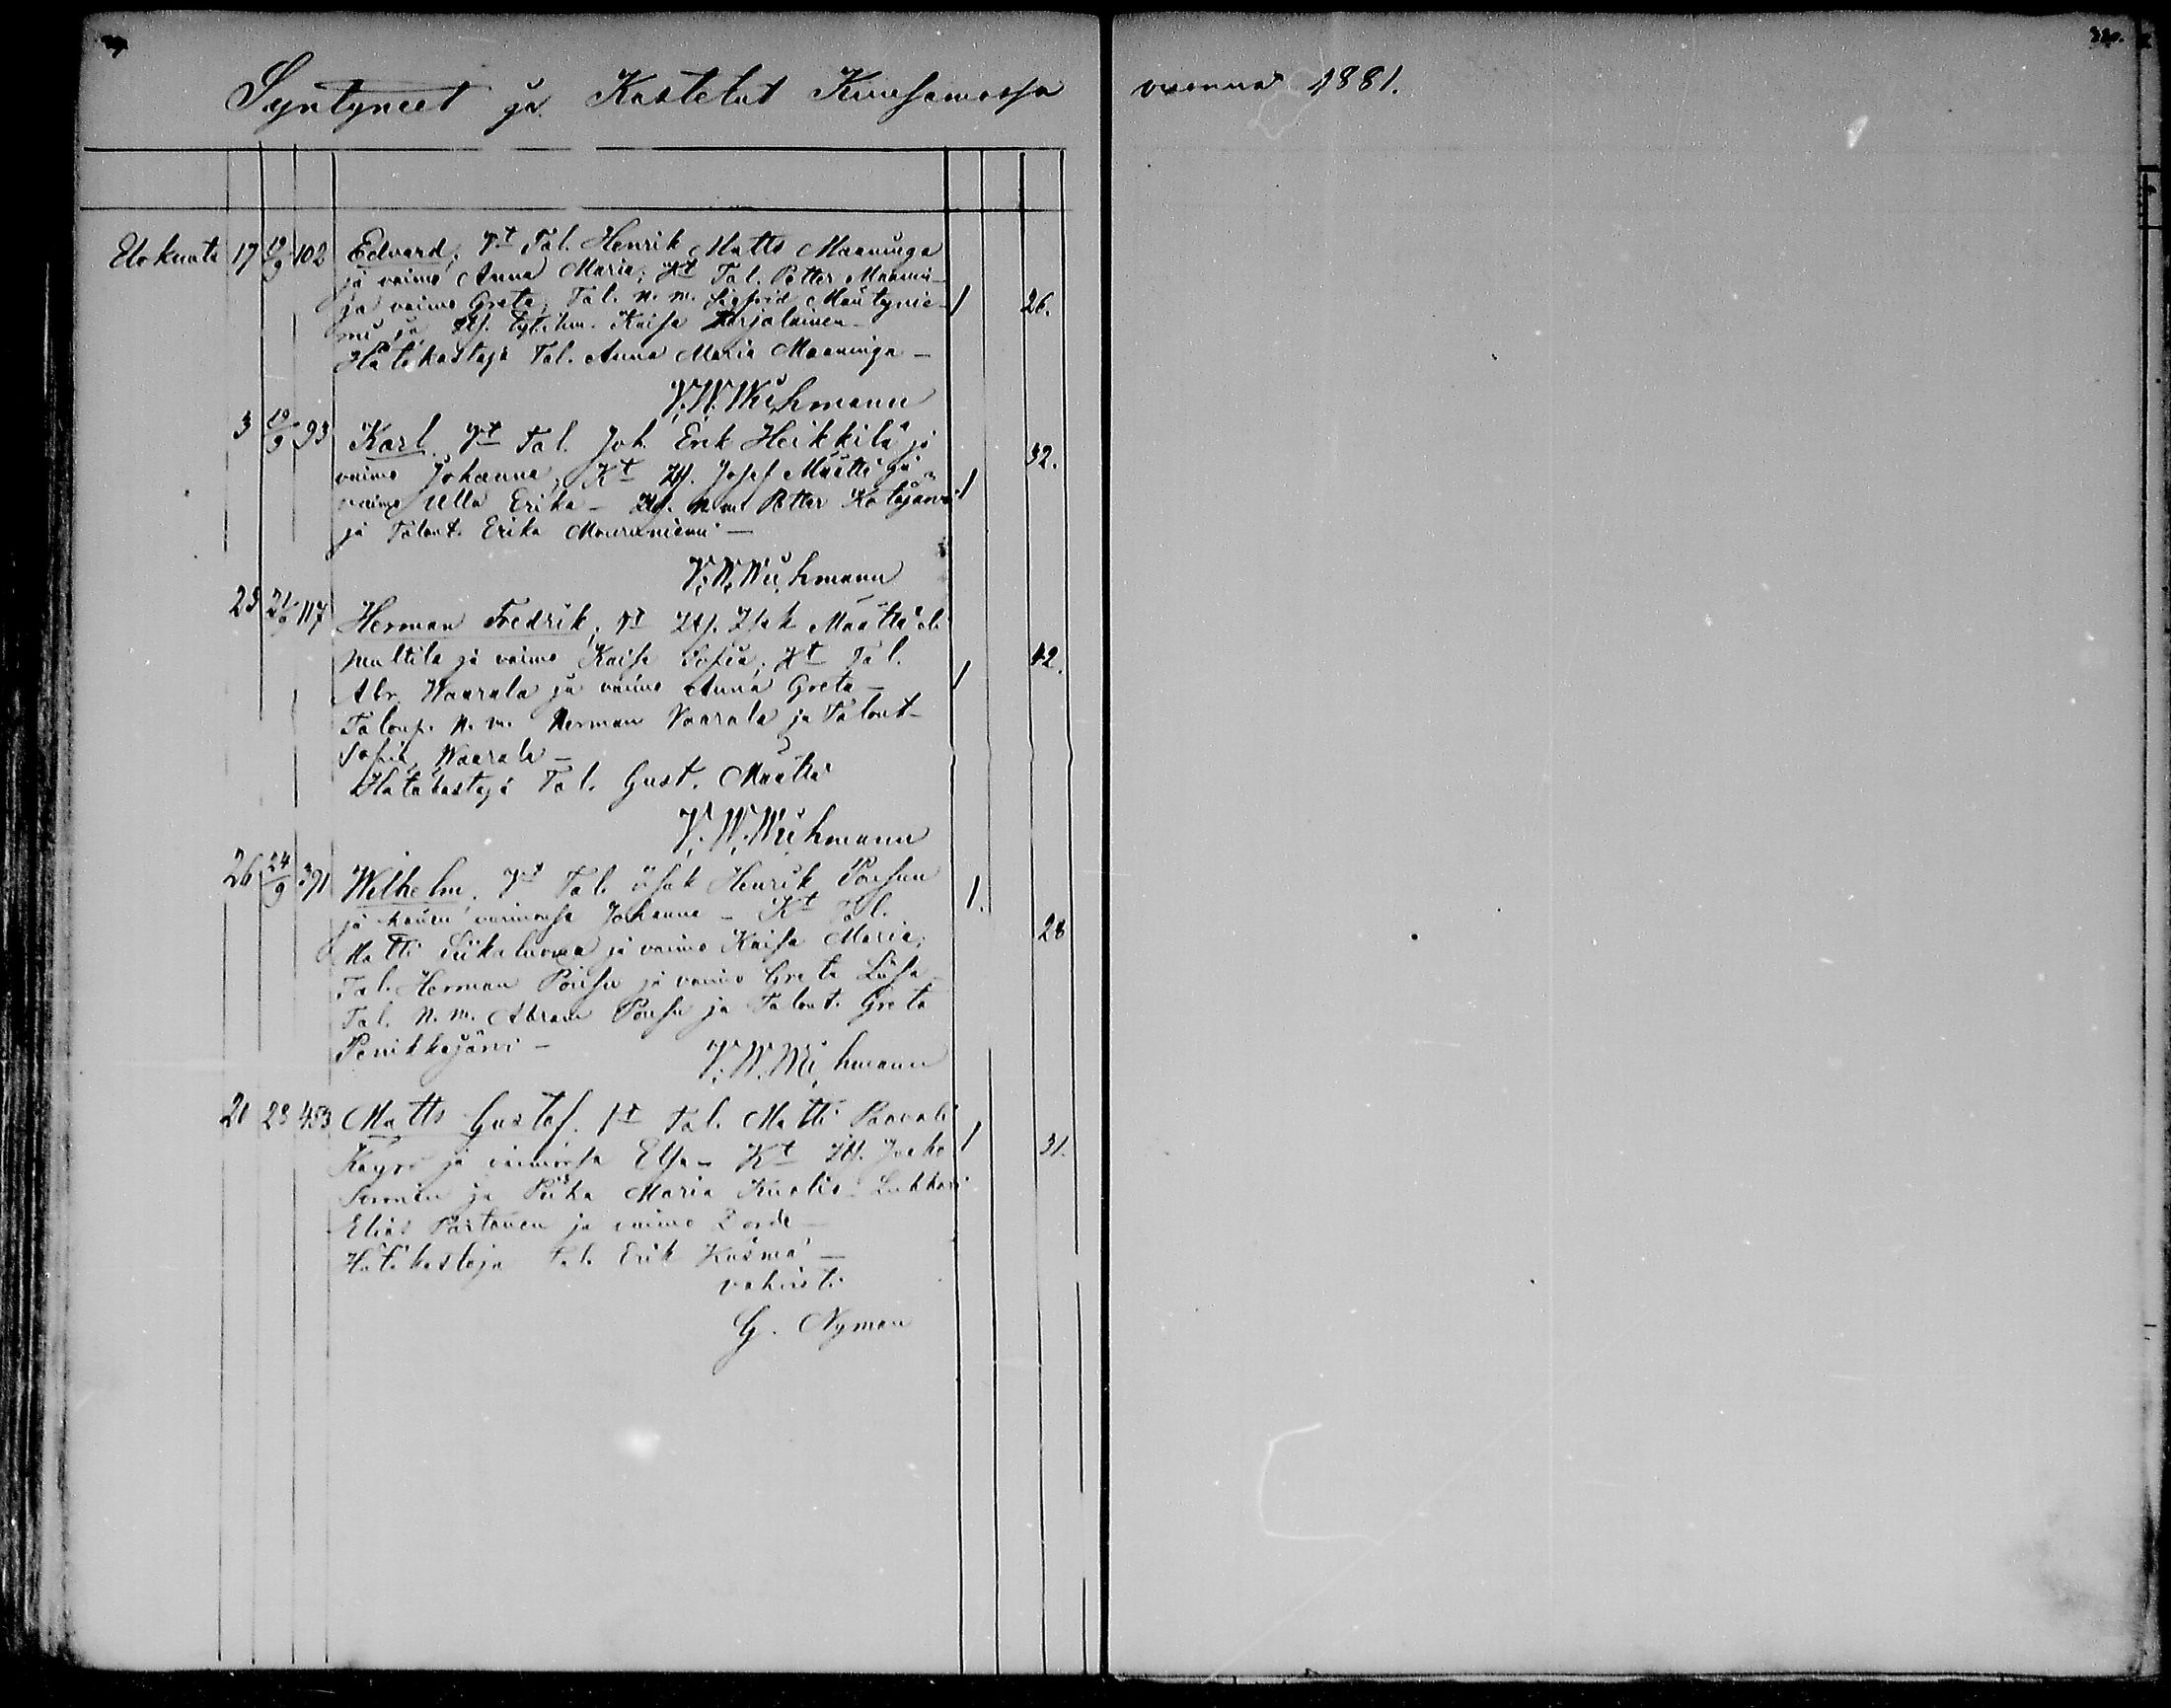 Syntyneet ja Kastetut Kuusamossa vuonna 1881.
Elokuuta 17 19/9 102 Edvard; Vt Tal. Henrik Matts Maaninga
ja vaimo Anna Maria; Kt Tal. Petter Maanin-
ga vaimo Greta; Tal. n. m. Sigfrid Mäntynie- 1 26.
mi ja Its. tytt. Kaisa Karjalainen -
Hätäkastaja Tal. Anna Maria Maaninga -
V. W. Wichmann
3 19/9 93 Karl Vt Tal. Joh. Erik Heikkilä ja 32.
vaimo Johanna; Kt Its. Josef Määttä ja
vaimo Ulla Erika - Its. n. m. Petter Kotajärvi 1
ja Talont. Erika Mouruniemi -
V. W. Wichmann
23 21/9 117 Herman Fredrik; Vt Its. Isak Määttä el.
Multila ja vaimo Kaisa Sofia; Kt Tal. 42.
Abr. Waarala ja vaimo Anna Greta - 1
Talonp. n. m. Herman Vaarala ja Talont-
Sofia Waarala -
Hätäkastaja Tal. Gust. Määttä
V. W. Wichmann
26 24/9 391 Wilhelm; Vt Tal. Isak Henrik Pousun
ja hänen vaimonsa Johanna - Kt Tal. 1.
Matti Siikaluoma ja vaimo Kaisa Maria; 28
Tal. Herman Pousu ja vaimo Greta Liisa
Tal. n. m. Abram Pousu ja Talont. Greta
Penikkajärvi -
V. W. Wichmann
21 28 453 Matts Gustaf. Vt Tal. Matti Paavali
Käyrö ja vaimonsa Elsa - Kt Its. Jaako 1 31.
ja Piika Maria Lukkari
Elias Partanen ja vaimo
Hätäkastaja Tal. Erik Kuosma -
vakuuti
G. Nyman